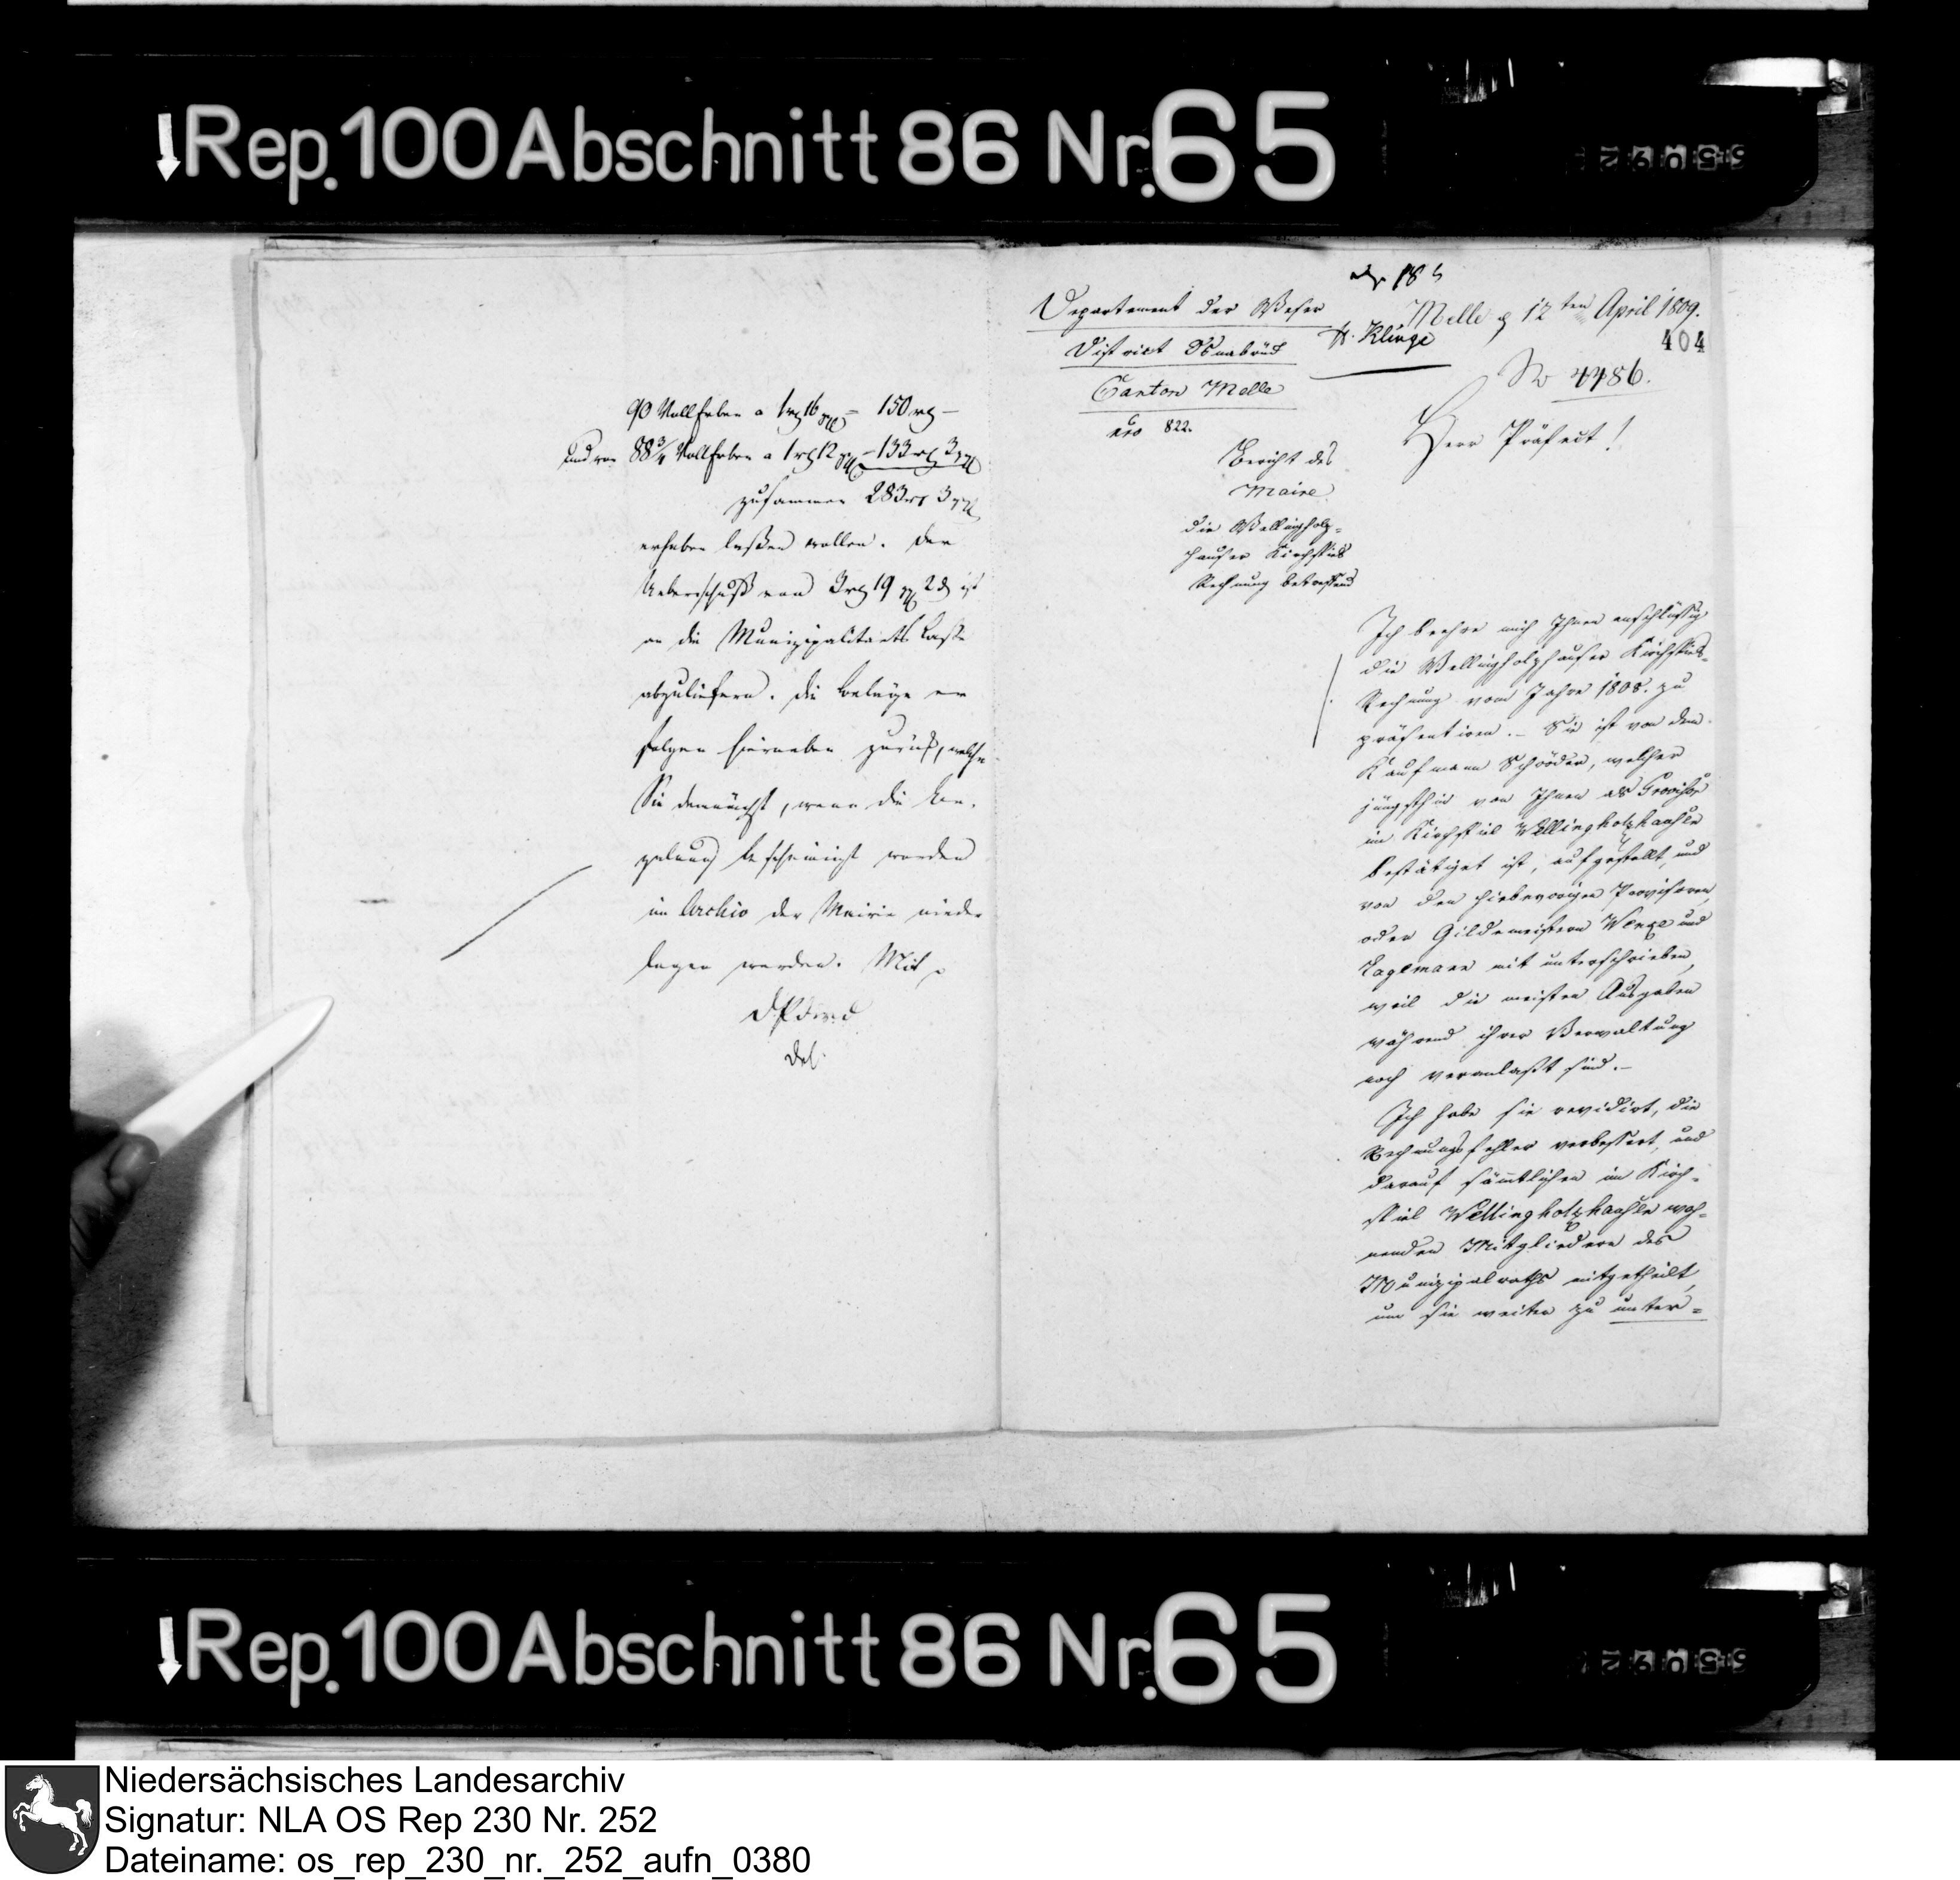 Rep. 100 Abschnitt 86 Nr. 65
90 Vollerben a 1 rg 16 = 150 rg –
und von 88 3/4 Vollerben a 1 rg 12 – 133 rg 3
zusammen 283 rg 3
erheben laßen wollen. Der
Ueberschuß von 3 rg 19 2 ist
an die Munizipalitaets Casse
abzuliefern. Die Belege er
folgen hierneben zurück, welche
Sie demnächst, wenn die
bescheinigt worden
im Archiv der Mairie nieder
legen werden. Mit
18
Departement der Weser
Melle 12ten April 1809.
H. Klinge
404
District Osnabrück
No 4486.
Canton Melle
nro 822.
Herr Präfect!
Bericht des
Maire
die Wellingholz-
hauser Kirchspiels
Rechnung betreffend
Ich beehre mich Ihnen anschlüssig
die Wellingholzhauser Kirchspiels-
Rechnung vom Jahre 1808. zu
präsentiren. – Sie ist von dem
Kaufmann Schröder, welcher
jüngsthin von Ihnen als Provisor
im Kirchspiel Wellingholzhausen
bestätiget ist, aufgestellt, und
von den hiebevorigen Provisoren,
oder Gildemeistern und
mit unterschrieben,
weil die meisten Ausgaben
während ihrer Verwaltung
noch veranlaßt sind. –
Ich habe sie revidirt, die
Rechnungsfehler verbessert, und
darauf sämtlichen im Kirch-
spiel Wellingholzhausen woh-
nenden Mitgliedern des
Munizipalraths mitgetheilt,
um sie weiter zu unter-
Rep. 100 Abschnitt 86 Nr. 65
Niedersächsisches Landesarchiv
Signatur: NLA OS Rep 230 Nr. 252
Dateiname: os_rep_230_nr._252_aufn_0380